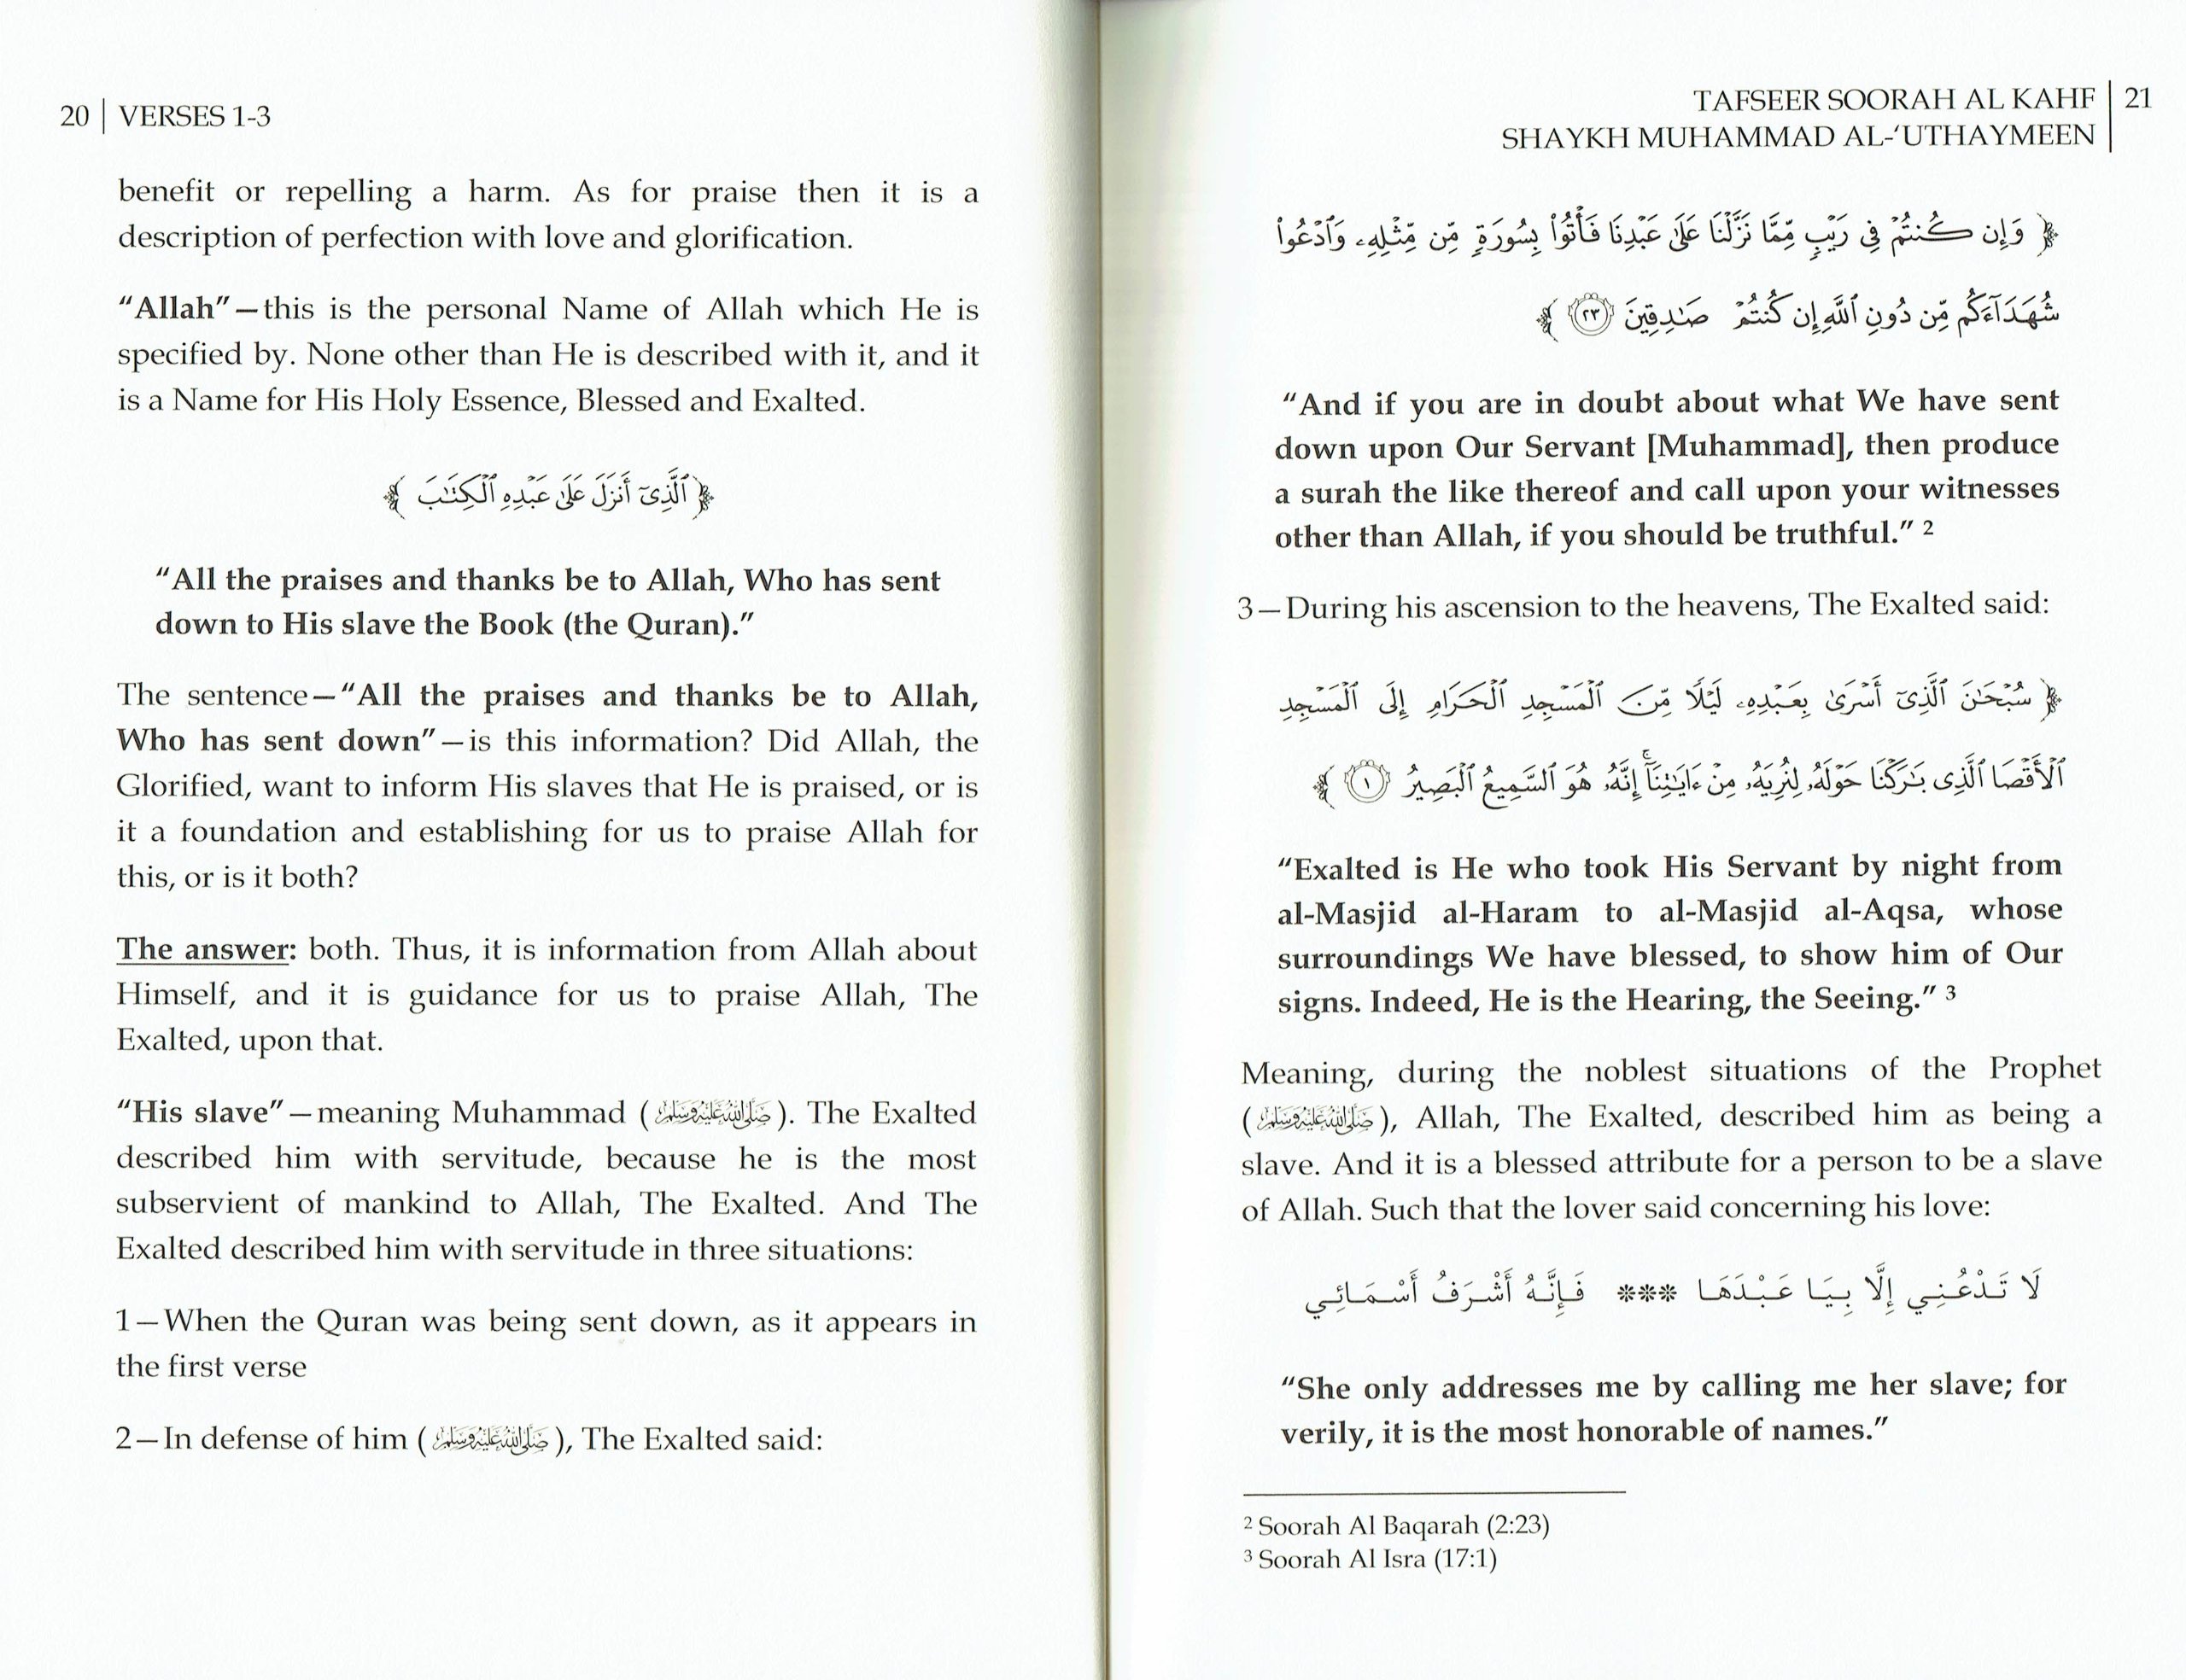 20 | VERSES 1-3
benefit or repelling a harm. As for praise then it is a
description of perfection with love and glorification.
“Allah”—this is the personal Name of Allah which He is
specified by. None other than He is described with it, and it
is a Name for His Holy Essence, Blessed and Exalted.
﴿ ٱلَّذِىٓ أَنزَلَ عَلَىٰ عَبْدِهِ ٱلْكِتَـٰبَ ﴾
“All the praises and thanks be to Allah, Who has sent
down to His slave the Book (the Quran).”
The sentence—“All the praises and thanks be to Allah,
Who has sent down”—is this information? Did Allah, the
Glorified, want to inform His slaves that He is praised, or is
it a foundation and establishing for us to praise Allah for
this, or is it both?
The answer: both. Thus, it is information from Allah about
Himself, and it is guidance for us to praise Allah, The
Exalted, upon that.
“His slave”—meaning Muhammad (ﷺ). The Exalted
described him with servitude, because he is the most
subservient of mankind to Allah, The Exalted. And The
Exalted described him with servitude in three situations:
1—When the Quran was being sent down, as it appears in
the first verse
2—In defense of him (ﷺ), The Exalted said:
TAFSEER SOORAH AL KAHF | 21
SHAYKH MUHAMMAD AL-‘UTHAYMEEN
﴿ وَإِن كُنتُمْ فِى رَيْبٍ مِّمَّا نَزَّلْنَا عَلَىٰ عَبْدِنَا فَأْتُوا۟ بِسُورَةٍ مِّن مِّثْلِهِۦ وَٱدْعُوا۟
شُهَدَآءَكُم مِّن دُونِ ٱللَّهِ إِن كُنتُمْ صَـٰدِقِينَ ٢٣ ﴾
“And if you are in doubt about what We have sent
down upon Our Servant [Muhammad], then produce
a surah the like thereof and call upon your witnesses
other than Allah, if you should be truthful.” 2
3—During his ascension to the heavens, The Exalted said:
﴿ سُبْحَـٰنَ ٱلَّذِىٓ أَسْرَىٰ بِعَبْدِهِۦ لَيْلًا مِّنَ ٱلْمَسْجِدِ ٱلْحَرَامِ إِلَى ٱلْمَسْجِدِ
ٱلْأَقْصَا ٱلَّذِى بَـٰرَكْنَا حَوْلَهُۥ لِنُرِيَهُۥ مِنْ ءَايَـٰتِنَآ ۚ إِنَّهُۥ هُوَ ٱلسَّمِيعُ ٱلْبَصِيرُ ١ ﴾
“Exalted is He who took His Servant by night from
al-Masjid al-Haram to al-Masjid al-Aqsa, whose
surroundings We have blessed, to show him of Our
signs. Indeed, He is the Hearing, the Seeing.” 3
Meaning, during the noblest situations of the Prophet
(ﷺ), Allah, The Exalted, described him as being a
slave. And it is a blessed attribute for a person to be a slave
of Allah. Such that the lover said concerning his love:
لَا تَدْعُنِي إِلَّا بِيَا عَبْدَهَا *** فَإِنَّهُ أَشْرَفُ أَسْمَائِي
“She only addresses me by calling me her slave; for
verily, it is the most honorable of names.”
2 Soorah Al Baqarah (2:23)
3 Soorah Al Isra (17:1)